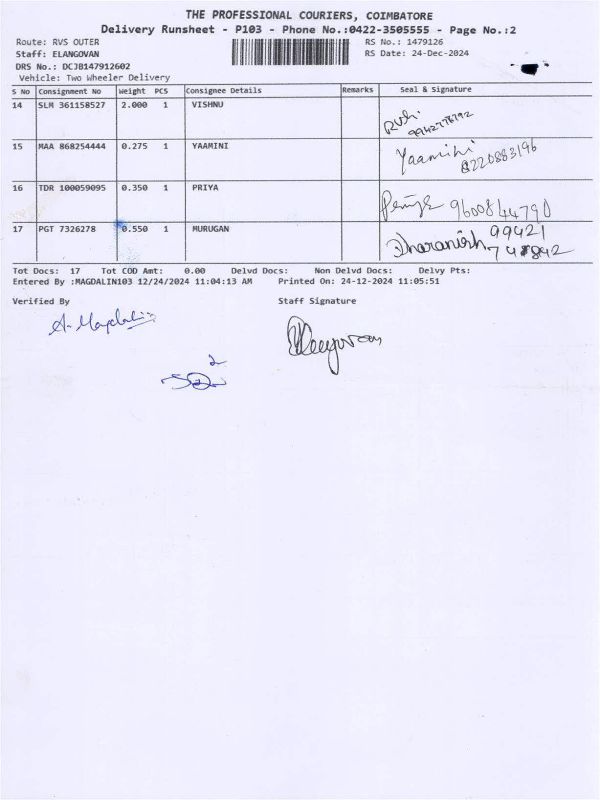 THE PROFESSIONAL COURIERS, COIMBATORE
Delivery Runsheet - P103 - Phone No.:0422-3505555 - Page No.:2
Route: RVS OUTER RS No.: 1479126
Staff: ELANGOVAN RS Date: 24-Dec-2024
DRS No.: DCJB147912602
Vehicle: Two Wheeler Delivery
S No Consignment No Weight PCS Consignee Details Remarks Seal & Signature
14 SLM 361158527 2.000 1 VISHNU
Rishi
15 MAA 868254444 0.275 1 YAAMINI Yaamini
8220883196
16 TDR 100059095 0.350 1 PRIYA
9600844790
17 PGT 7326278 0.550 1 MURUGAN Dharanish 99421
Tot Docs: 17 Tot COD Amt: 0.00 Delvd Docs: Non Delvd Docs: Delvy Pts:
Entered By :MAGDALIN103 12/24/2024 11:04:13 AM Printed On: 24-12-2024 11:05:51
Verified By Staff Signature
A. Magdalin